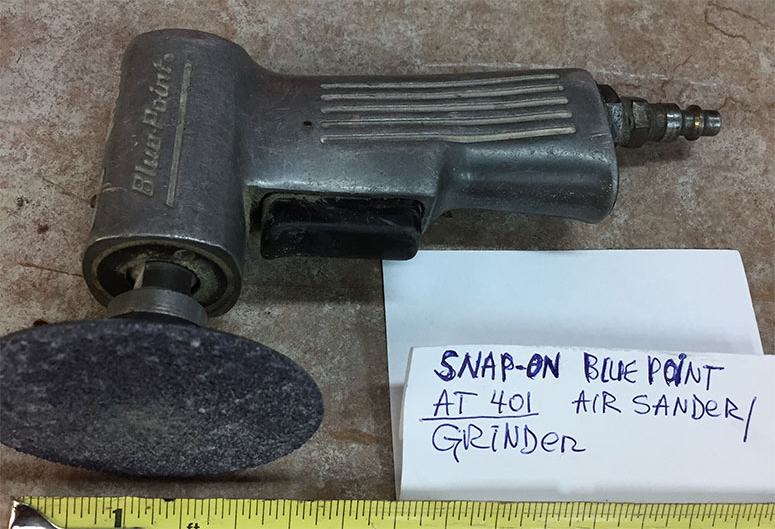 Blue-Point®
SNAP-ON BLUE POINT
AT 401 AIR SANDER/
GRINDER
1